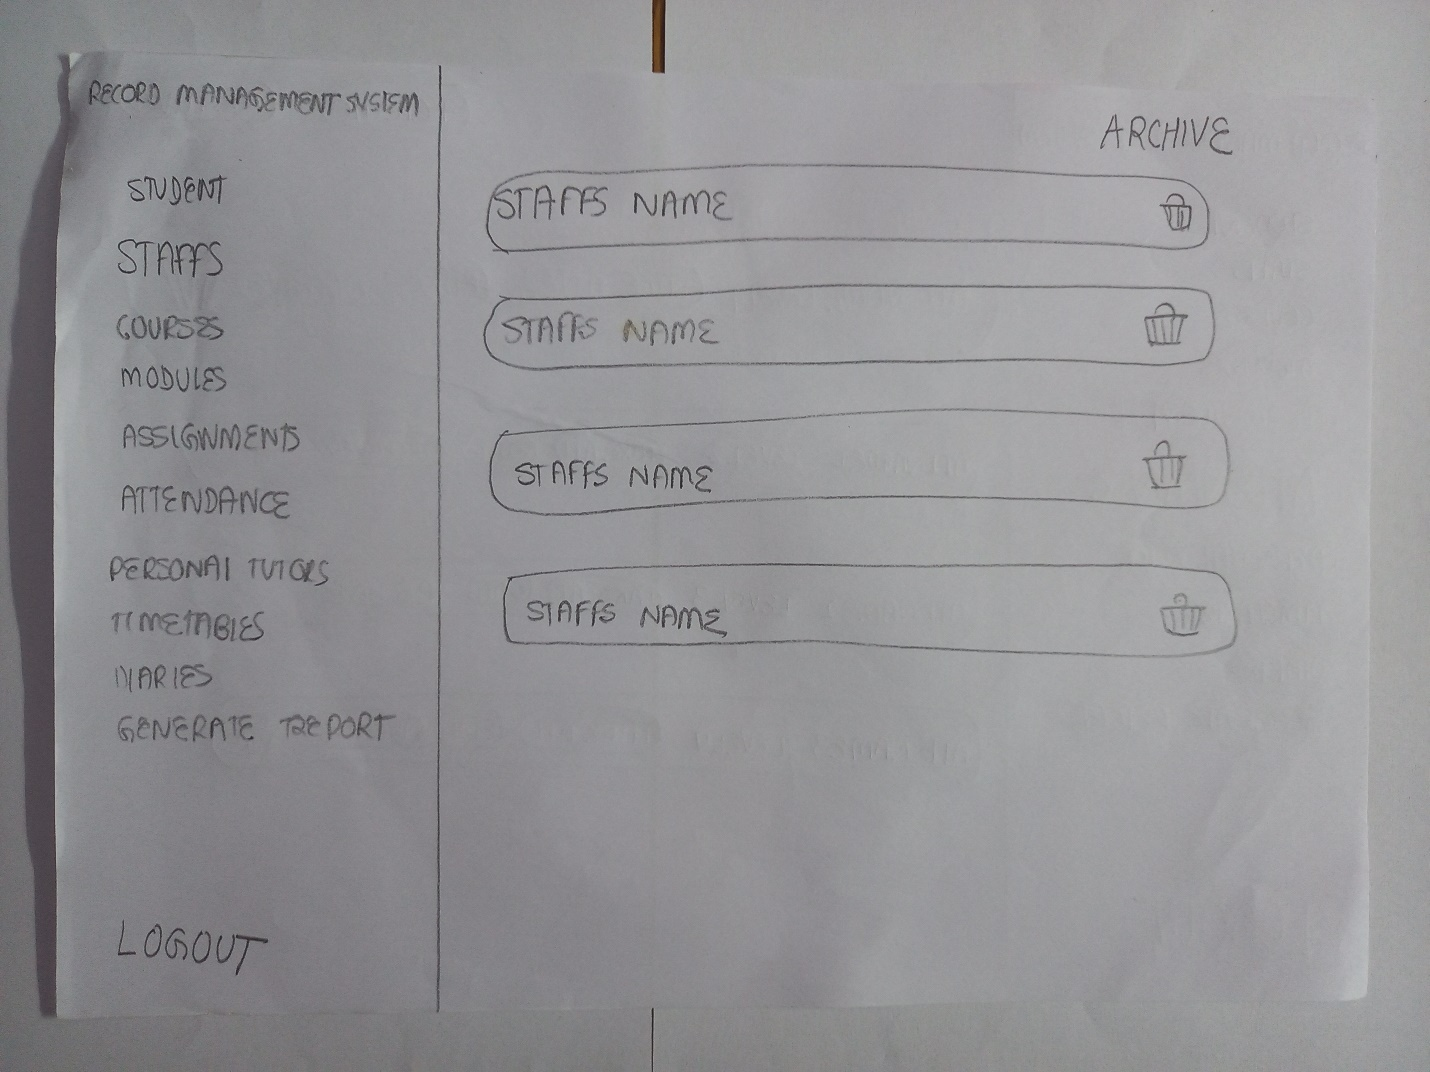 RECORD MANAGEMENT SYSTEM
STUDENT
STAFFS
COURSES
MODULES
ASSIGNMENTS
ATTENDANCE
PERSONAL TUTORS
TIMETABLES
DIARIES
GENERATE REPORT
LOGOUT
ARCHIVE
STAFFS NAME
STAFFS NAME
STAFFS NAME
STAFFS NAME